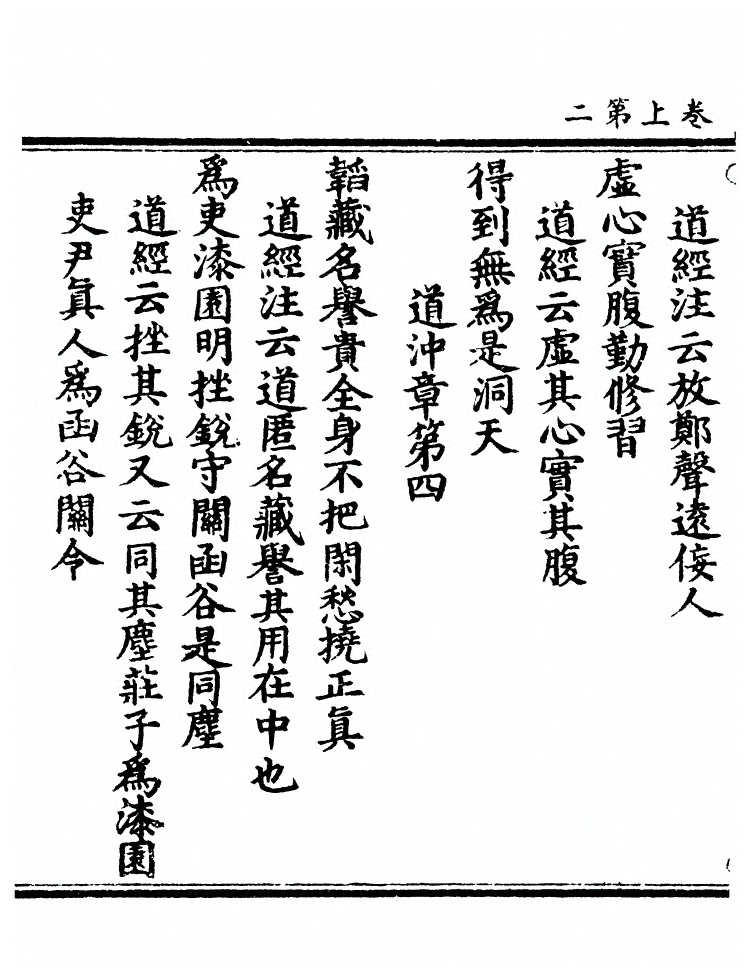 卷上第二
道經注云放鄭聲遠佞人
虛心實腹勤修習
道經云虛其心實其腹
得到無爲是洞天
道沖章第四
韜藏名譽貴全身不把閑愁撓正眞
道經注云道匿名藏譽其用在中也
爲吏漆園明挫銳守關函谷是同塵
道經云挫其銳又云同其塵莊子爲漆園
吏尹眞人爲函谷關令